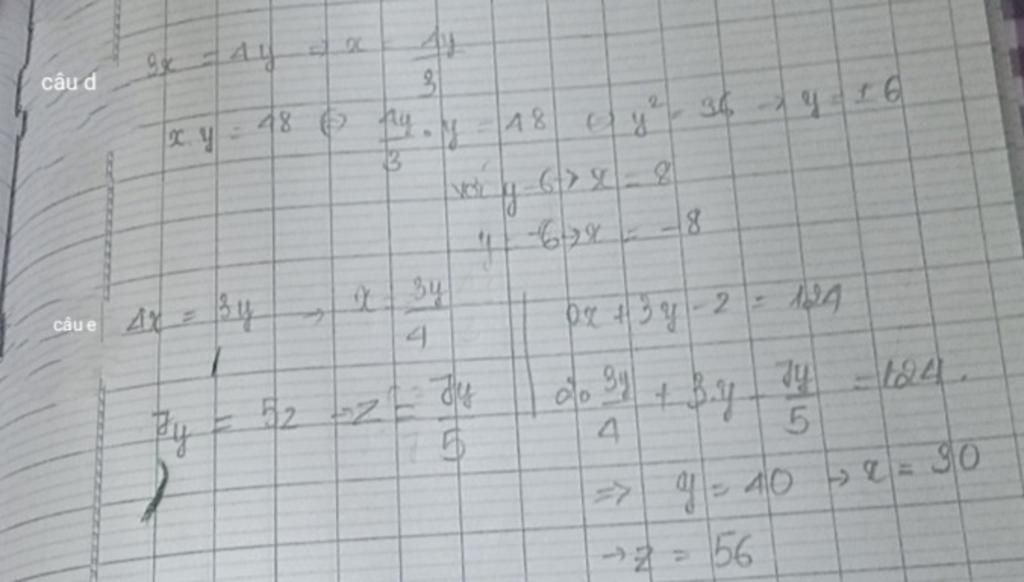 câu d 3x = 4y => x = 4y/3
x.y = 48 <=> 4y/3 . y = 48 <=> y² = 36 → y = ±6
với y = 6 → x = 8
y = -6 → x = -8
câu e 4x = 3y → x = 3y/4 | 2x + 3y - z = 124
7y = 5z → z = 7y/5 | 2. 3y/4 + 3.y - 7y/5 = 124.
=> y = 40 → x = 30
→ z = 56